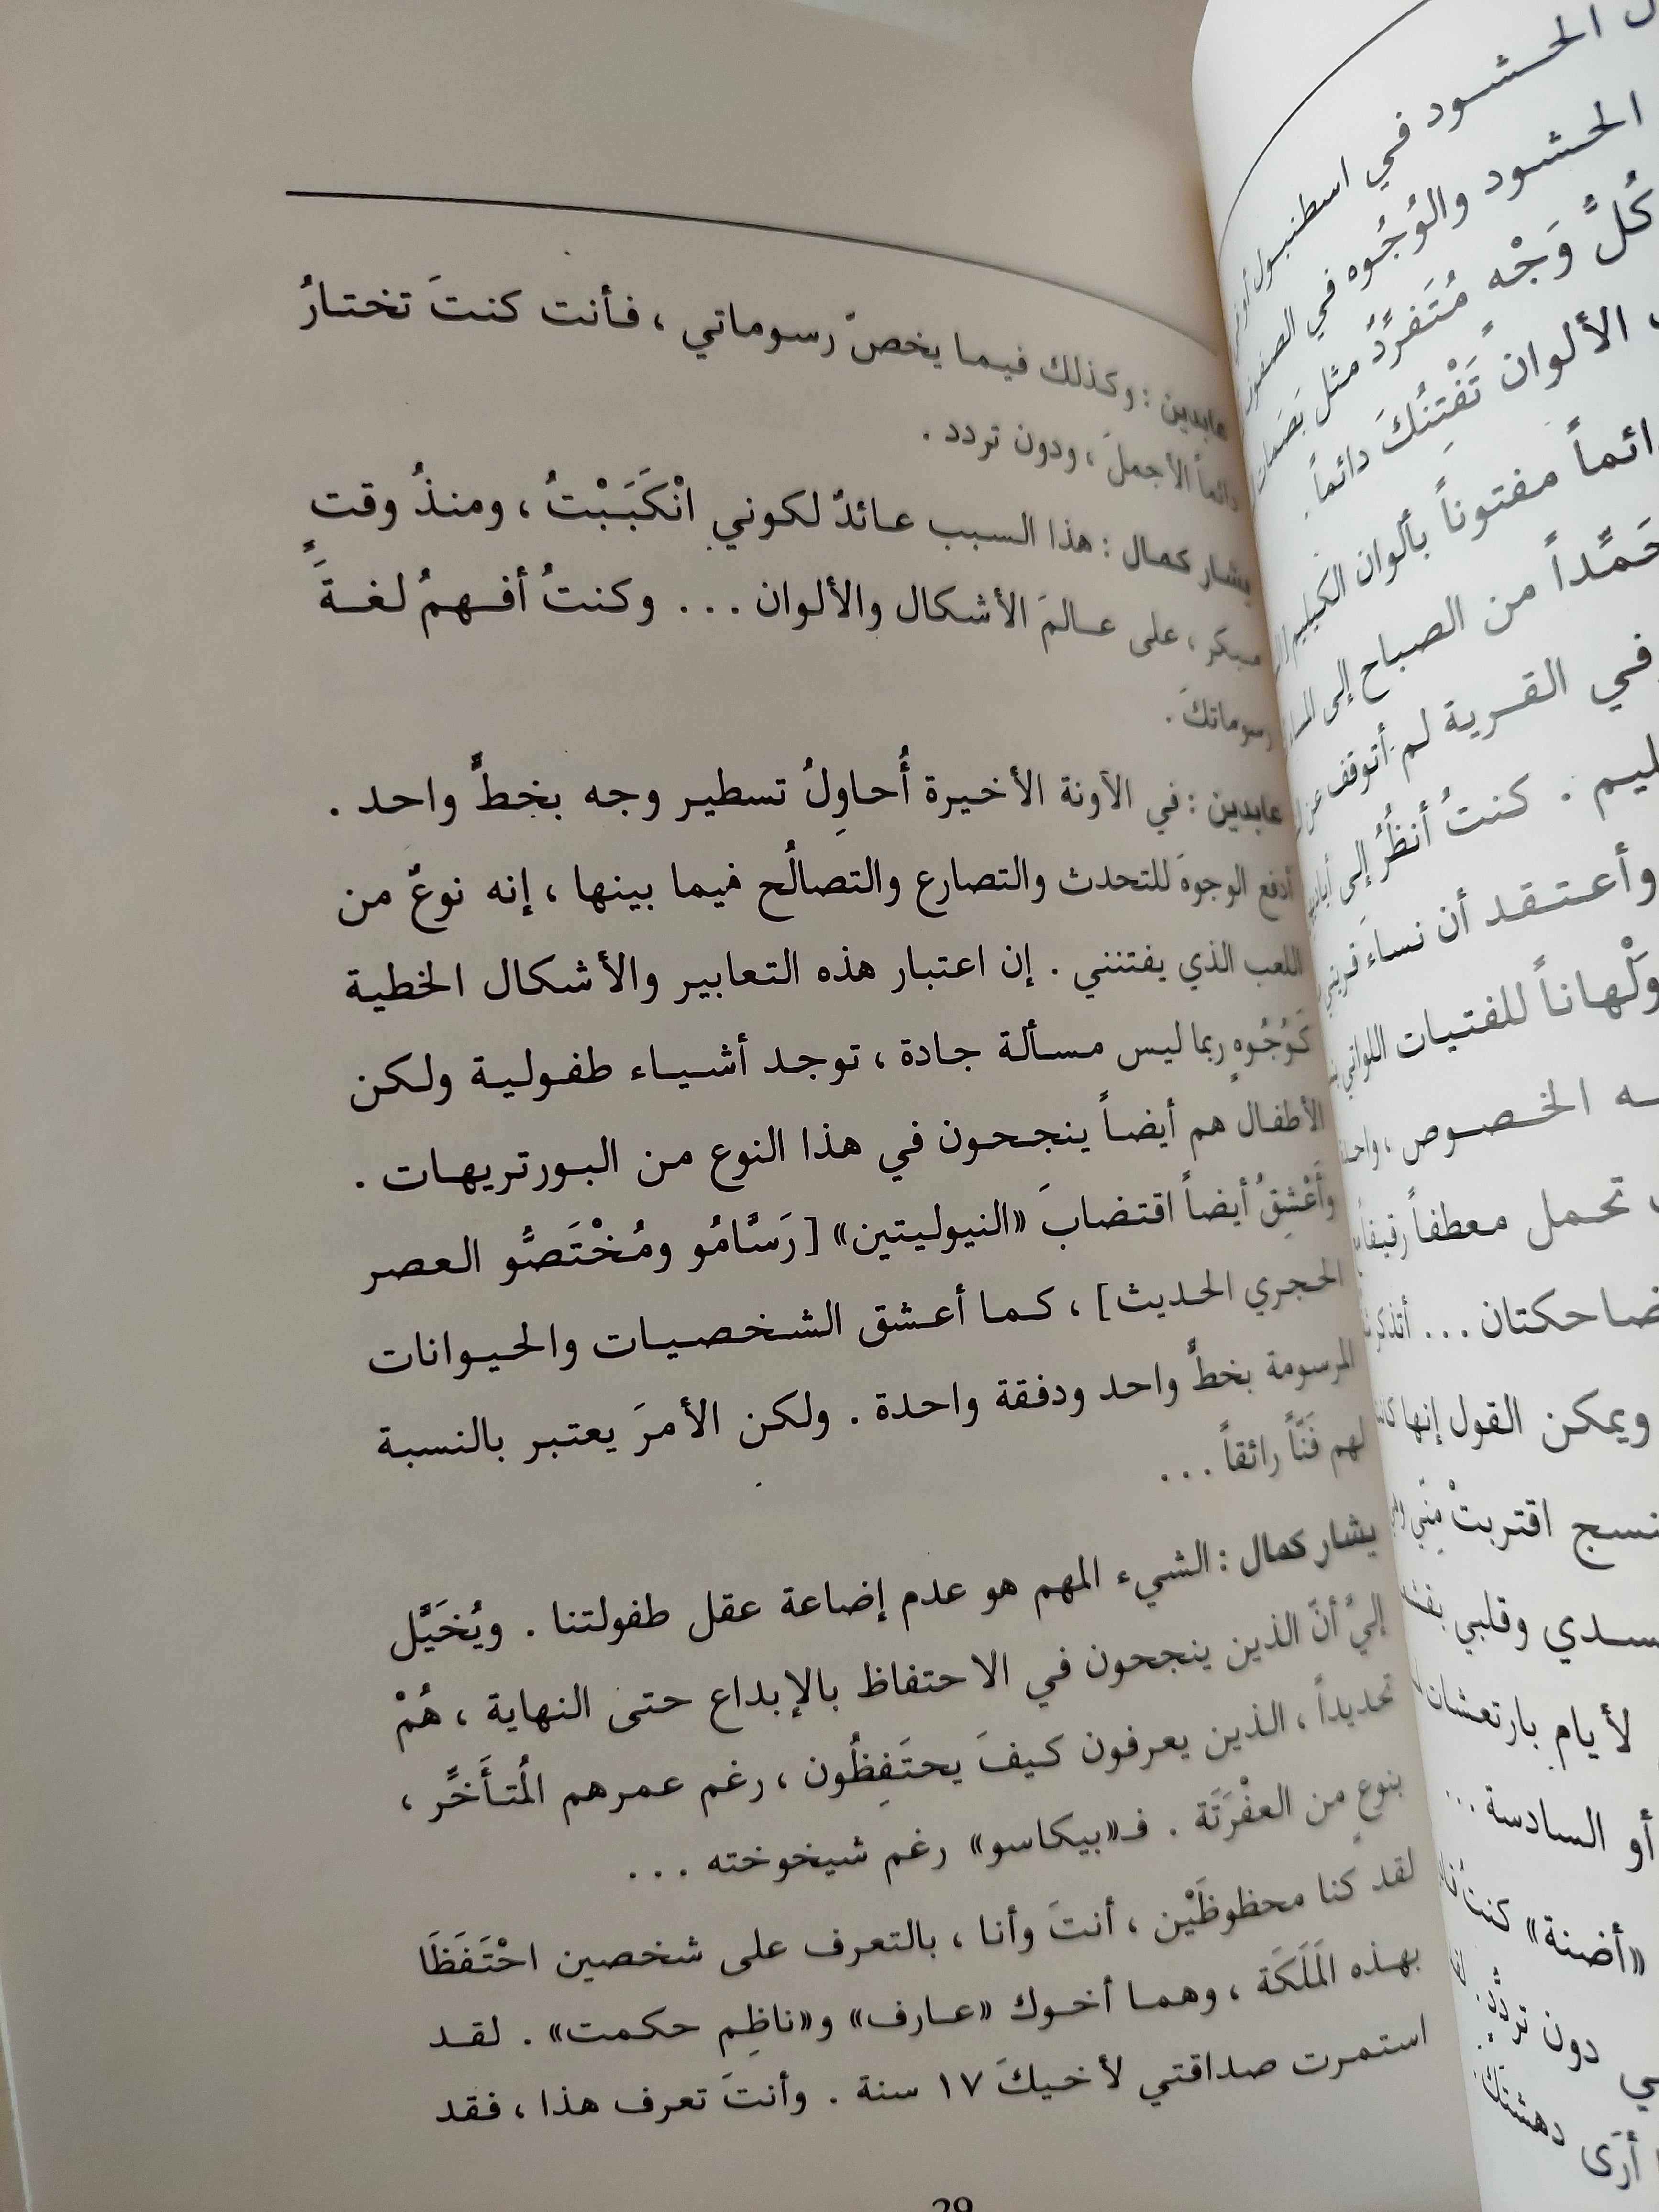 عابدين : وكذلك فيما يخصّ رسوماتي ، فأنت كنتَ تختارُ
دائماً الأجملَ ، ودون تردد .
يشار كمال : هذا السبب عائدٌ لكوني انْكَبَبْتُ ، ومنذُ وقتٍ
مبكر ، على عالمَ الأشكال والألوان ... وكنتُ أفهمُ لغةَ
رسوماتكَ .
عابدين : في الآونة الأخيرة أُحاوِلُ تسطير وجه بخطٍّ واحد .
أدفع الوجوهَ للتحدث والتصارع والتصالُح فيما بينها ، إنه نوعٌ من
اللعب الذي يفتنني . إن اعتبار هذه التعابير والأشكال الخطية
كَوُجُوهٍ ربما ليس مسألة جادة ، توجد أشياء طفولية ولكن
الأطفال هم أيضاً ينجحون في هذا النوع من البورتريهات .
وأَعْشِقُ أيضاً اقتضابَ «النيوليتين» [رَسَّامُو ومُخْتَصُّو العصر
الحجري الحديث] ، كما أعشق الشخصيات والحيوانات
المرسومة بخطٍّ واحد ودفقة واحدة . ولكن الأمرَ يعتبر بالنسبة
لهم فَنّاً رائقاً ...
يشار كمال : الشيء المهم هو عدم إضاعة عقل طفولتنا . ويُخَيَّل
إليَّ أنّ الذين ينجحون في الاحتفاظ بالإبداع حتى النهاية ، هُمْ
تحديداً ، الذين يعرفون كيفَ يحتَفِظُون ، رغم عمرهم المُتأَخِّر ،
بنوعٍ من العفْرَتَة . فـ«بيكاسو» رغم شيخوخته ...
لقد كنا محظوظَيْن ، أنتَ وأنا ، بالتعرف على شخصين احْتَفَظَا
بهذه المَلَكَة ، وهما أخوك «عارف» و«ناظِم حكمت» . لقد
استمرت صداقتي لأخيكَ ١٧ سنة . وأنتَ تعرف هذا ، فقد
29
الحشود في اسطنبول
الحشود والوُجُوه في
كُلُّ وَجْهٍ مُتَفرِّدٌ مثل بَصَمات
الألوان تَفْتِنُكَ دائماً .
مفتوناً بألوان الكيليم
من الصباح إلى المساء
في القرية لم أتوقف عن
. كنتُ أنظُرُ إلى
وأعتقد أن نساءَ قريتي
وَلْهاناً للفتيات اللواتي
الخصوص ، واحدة
تحمل معطفاً
ضاحكتان ... أتذكر
ويمكن القول إنها كانت
اقتربتْ مِنّي
وقلبي
لأيام بارتعشات
أو السادسة ...
«أضنة» كنتُ
دون تردُّد .
أرَى دهشتكَ